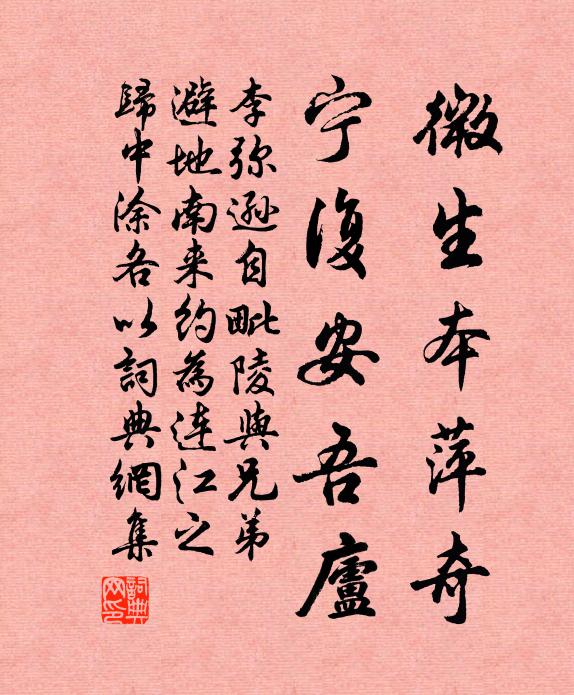 微生本萍奇
宁復安吾廬
李弥遜自毗陵與兄弟
避地南来約為連江之
歸中涂各以詞典網集
詞典網印